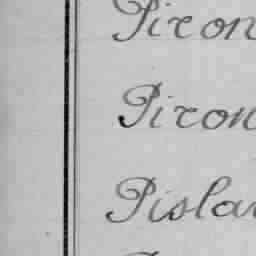 Piron
Piron
Pisla